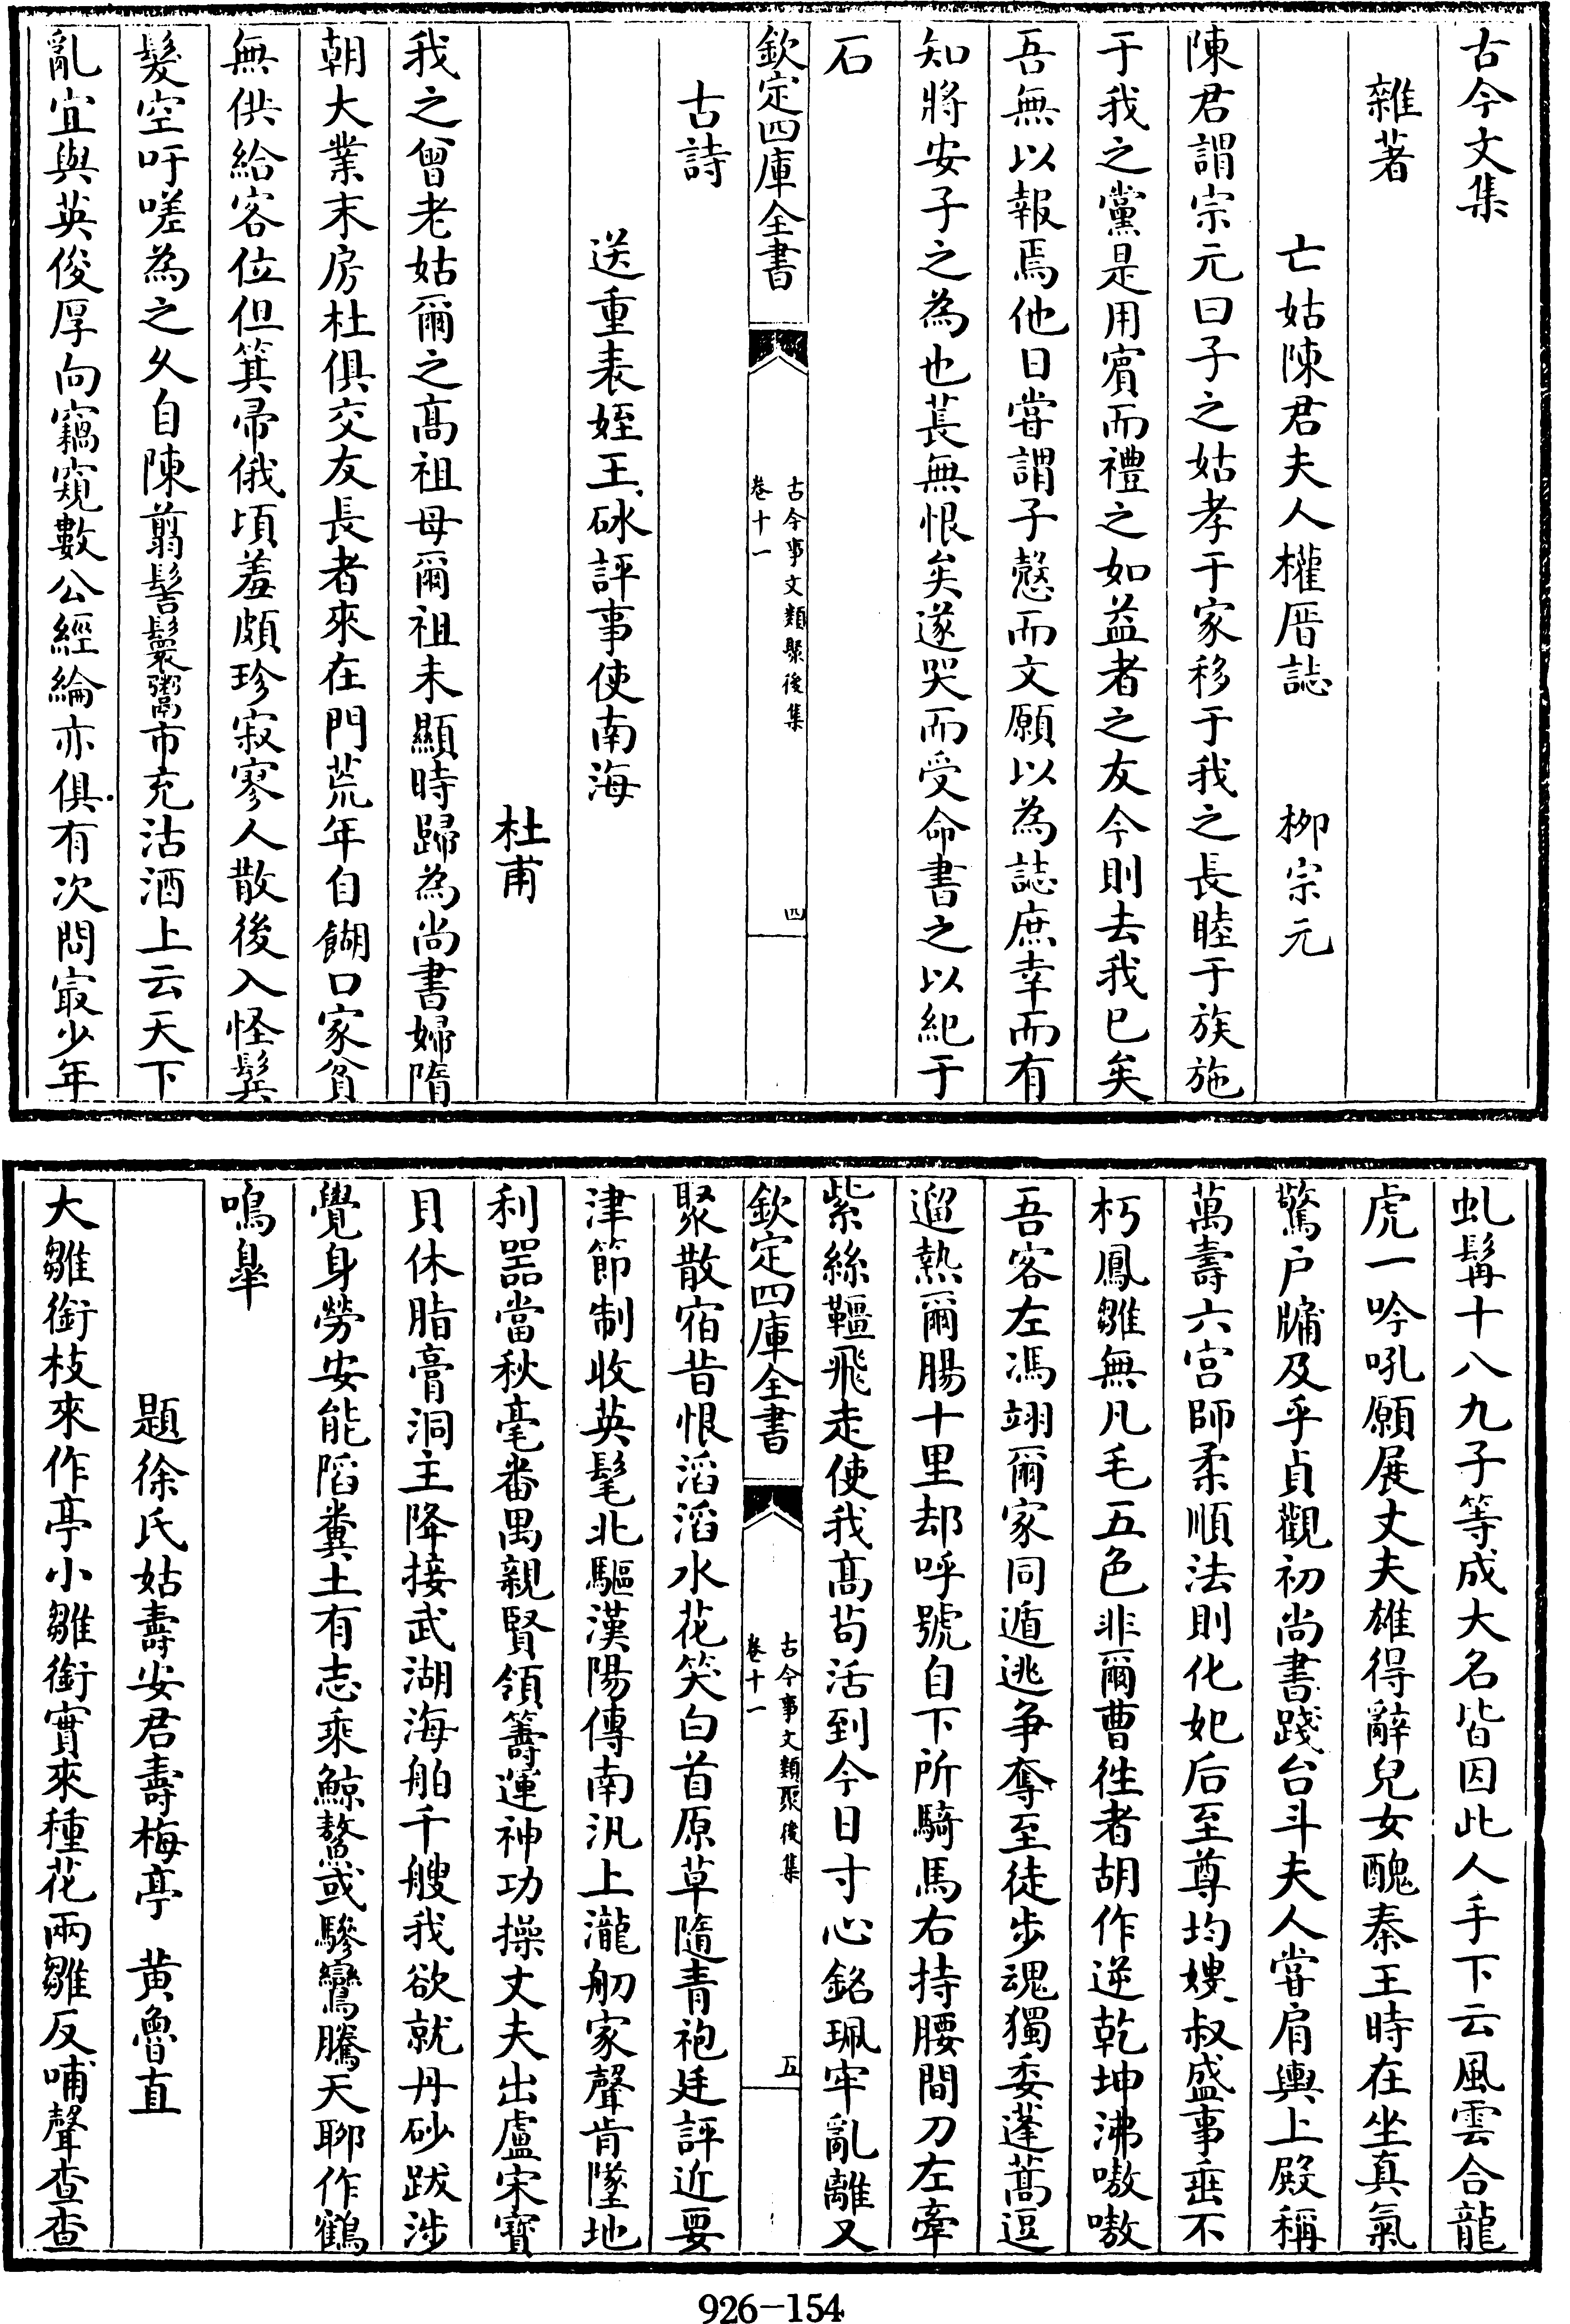 古今文集
雜著
亡姑陳君夫人權厝誌　栁宗元
陳君謂宗元曰子之姑孝于家移于我之長睦于族施
于我之黨是用賓而禮之如益者之友今則去我已矣
吾無以報焉他日甞謂子慤而文願以為誌庶幸而有
知將安子之為也萇無恨矣遂哭而受命書之以紀于
石
欽定四庫全書
古今事文類聚後集
卷十一
四
古詩
送重表姪王砅評事使南海
杜甫
我之曾老姑爾之髙祖母爾祖未顯時歸為尚書婦隋
朝大業末房杜俱交友長者來在門荒年自餬口家貧
無供給客位但箕帚俄頃羞頗珍寂寥人散後入怪鬢
髮空吁嗟為之久自陳翦髻鬟鬻市充沽酒上云天下
亂宜與英俊厚向竊窺數公經綸亦俱有次問㝡少年
虬髯十八九子等成大名皆因此人手下云風雲合龍
虎一吟吼願展丈夫雄得辭兒女醜秦王時在坐真氣
驚户牖及乎貞觀初尚書踐台斗夫人甞肩輿上殿稱
萬壽六宫師柔順法則化妃后至尊均嫂叔盛事垂不
朽鳳雛無凡毛五色非爾曹徃者胡作逆乾坤沸嗷嗷
吾客左馮翊爾家同遁逃争奪至徒步魂獨委蓬蒿逗
遛熱爾腸十里却呼號自下所騎馬右持腰間刀左牽
紫絲韁飛走使我髙茍活到今日寸心銘珮牢亂離又
欽定四庫全書
古今事文類聚後集
卷十一
五
聚散宿昔恨滔滔水花笑白首原草隨青袍廷評近要
津節制收英髦北驅漢陽傳南汎上瀧舠家聲肯墜地
利器當秋毫番禺親賢領籌運神功操丈夫出盧宋寳
貝休脂膏洞主降接武湖海舶千艘我欲就丹砂跋涉
覺身勞安能陷糞土有志乘鯨鰲或驂鸞騰天聊作鶴
鳴臯
題徐氏姑壽安君壽梅亭　黄魯直
大雛銜枝來作亭小雛銜實來種花兩雛反哺聲查查
926-154